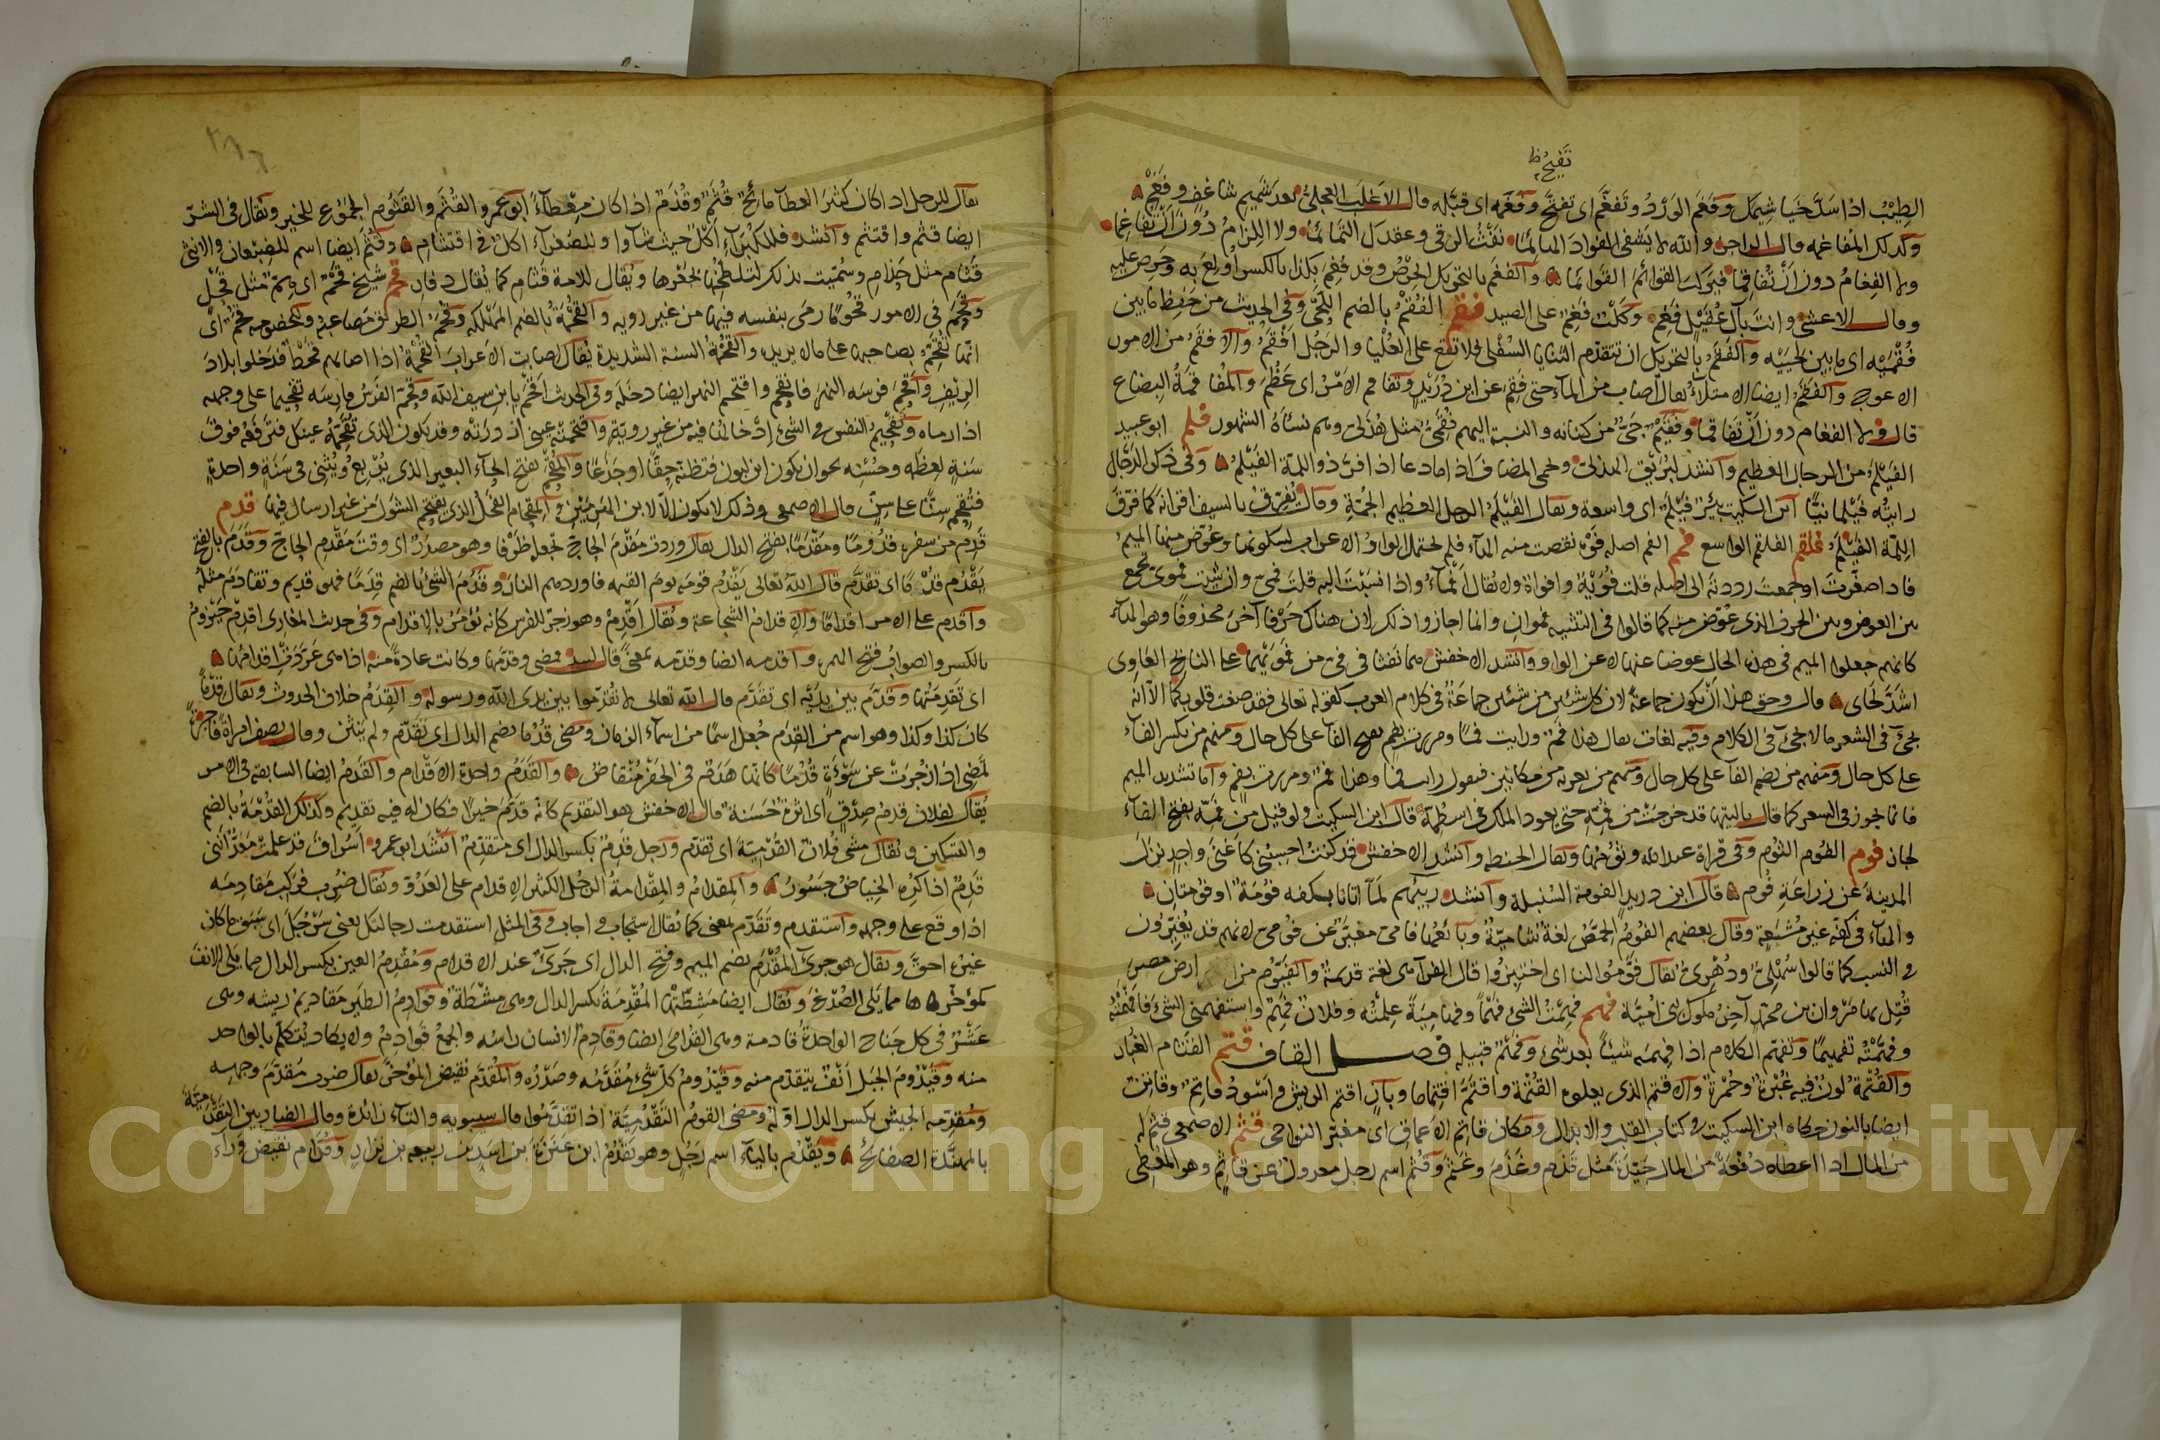 تَفَتَّحَ ظ
الطيب اذا سدّ خياشيمك وفغم الورد وتفغّم اى تفتّح وفغمه اى قبّله قال الاغلب العجلى بعد شميم شاغف وفغم
وكذلك المفاغمه قال الراجز والله لا يشفى الفؤاد الهائما نفث الرقى وعقدك التمائما ولا اللزام دون ان تفاغما
ولا الفغام دون ان تفاقما فتركب القوائم القوائما والفغم بالتحريك الحرص وقد فغم بكذا بالكسر اولع به وحرص عليه
وقال الاعشى وانت بآل عقيل فغم وكلب فغم على الصيد فقم الفقم بالضم اللحى وفى الحديث من حفظ ما بين
فقميه اى ما بين لحييه والفقم بالتحريك ان تتقدم الثنايا السفلى فلا تقع على العليا والرجل افقم والافقم من الامور
الاعوج والفقم ايضا الامتلاء يقال اصاب من الماء حتى فقم عن ابن دريد وتفاقم الامر اى عظم والمفاقمة البضاع
قال ولا الفغام دون ان تفاقما وفقيم حى من كنانه والنسبة اليهم فقمى مثل هذلى وهم نساة الشهور فلم ابو عبيد
الفيلم من الرجال العظيم وانشد لبريق الهذلى ويحمى المضاف اذا ما دعا اذا فر ذو اللمة الفيلم وفى ذكر الدجال
رايته فيلمانيا ابن السكيت بئر فيلم اى واسعة ويقال الفيلم الرجل العظيم الجمة وقال يفرق بالسيف اقرانه كما فرق
اللمة الفيلم فلقم الفلقم الواسع فم الفم اصله فوه نقصت منه الهاء فلم تحتمل الواو الاعراب لسكونها وعوض منها الميم
فاذا صغرت او جمعت رددته الى اصله قلت فويه وافواه ولا يقال افماء واذا نسبت اليه قلت فمى وان شئت فموى تجمع
بين العوض وبين الحرف الذى عوض منه كما قالوا فى التثنيه فموان وانما اجازوا ذلك لان هناك حرفا آخر محذوفا وهو الهاء
كانهم جعلوا الميم فى هذه الحال عوضا عنها لا عن الواو وانشد الاخفش هما نفثا فى فى من فمويهما على النابح العاوى
اشد لجاى قال وحق هذا ان يكون جماعة لان كل شئين من شئين جماعة فى كلام العرب كقوله تعالى فقد صغت قلوبكما الا انه
يجئ فى الشعر ما لا يجئ فى الكلام وفيه لغات يقال هذا فم ورايت فما ومررت بفم بفتح الفاء على كل حال ومنهم من يكسر الفاء
على كل حال ومنهم من يضم الفاء على كل حال ومنهم من يعربه من مكانين فيقول رايت فما وهذا فم ومررت بفم واما تشديد الميم
فانما يجوز فى الشعر كما قال يا ليتها قد خرجت من فمه حتى يعود الملك فى اسطمه قال ابن السكيت ولو قيل من فمه بفتح الفاء
لجاز فوم الفوم الثوم وفى قراة عبد الله وثومها ويقال الحنطه وانشد الاخفش قد كنت احسبنى كاغنى واجد نزل
المدينة عن زراعة فوم قال ابن دريد الفومة السنبلة وانشد ربيئهم لما اتانا بكفه فومة او فومتان
والهاء فى كفه غير مشبعة وقال بعضهم الفوم الحمص لغة شامية وبائعها فامى مغير عن فومى لانهم قد يغيرون
فى النسب كما قالوا سهلى ودهرى يقال فوموا لنا اى اختبزوا قال الفراء هى لغة قديمة والفيوم من ارض مصر
قتل بها مروان بن محمد آخر ملوك بنى امية فهم فهمت الشئ فهما وفهامية علمته وفلان فهم واستفهمنى الشئ فافهمته
وفهمته تفهيما وتفهم الكلام اذا فهمه شيئا بعد شئ وفهم قبيله فصل القاف قتم القتام الغبار
والقتمة لون فيه غبرة وحمرة والاقتم الذى يعلوه القتمة واقتم اقتماما وباز اقتم الريش واسود قاتم وقاتن
ايضا بالنون حكاه ابن السكيت فى كتاب القلب والابدال ومكان قاتم الاعماق اى مغبر النواحى قثم الاصمعى قثم له
من المال اذا اعطاه دفعة من المال جيدة مثل قذم وغذم وغثم وقثم اسم رجل معدول عن قاثم وهو المعطى
يقال للرجل اذا كان كثير العطاء مائح قثم وقذم اذا كان معطاء ابو عمرو القثم والقثوم الجموع للخير ويقال فى الشر
ايضا قثم واقتثم وانشد فللكبراء اكل حيث شاءوا وللصغراء اكل واقتثام وقثم ايضا اسم للضبعان والانثى
قثام مثل حذام وسميت بذلك لتلطخها بجعرها ويقال للامة قثام كما يقال دفار قحم شيخ قحم اى هم مثل قحل
وقحم فى الامور قحوما رمى بنفسه فيها من غير رويه والقحمة بالضم المهلكه وقحم الطريق مصاعبه وللخصومه قحم اى
انها تقحم بصاحبها على ما لا يريد والقحمة السنة الشديدة يقال اصابت الاعراب القحمة اذا اصابهم قحط فدخلوا بلاد
الريف واقحم فرسه النهر فانقحم واقتحم النهر ايضا دخله وفى الحديث اقحم يا بن سيف الله وقحم الفرس فارسه تقحيما على وجهه
اذا رماه وتقحيم النفس فى الشئ ادخالها فيه من غير روية واقتحمته عينى ازدرته وقد يكون الذى تقحمه عينك فترفعه فوق
سنه لعظمه وحسنه نحو ان يكون ابن لبون فتظنه حقا او جذعا والمقحم بفتح الحاء البعير الذى يربع ويثنى فى سنة واحدة
فتقحم سنا على سن قال الاصمعى وذلك لا يكون الا لابن الهرمين والمقحام الفحل الذى يقتحم الشول من غير ارسال فيها قدم
قدم من سفره قدوما ومقدما بفتح الدال يقال وردت مقدم الحاج تجعله ظرفا وهو مصدر اى وقت مقدم الحاج وقدم بالفتح
يقدم قدما اى تقدم قال الله تعالى يقدم قومه يوم القيمه فاوردهم النار وقدم الشئ بالضم قدما فهو قديم وتقادم مثله
واقدم على الامر اقداما والاقدام الشجاعة ويقال اقدم وهو زجر للفرس كانه يؤمر بالاقدام وفى حديث المغازى اقدم حيزوم
بالكسر والصواب فتح الهمزه واقدمه ايضا وقدمه بمعنى قال لبيد فمضى وقدمها وكانت عادة منه اذا هى عردت اقدامها
اى تقدمها وقدم بين يديه اى تقدم قال الله تعالى لا تقدموا بين يدى الله ورسوله والقدم خلاف الحدوث ويقال قدما
كان كذا وكذا وهو اسم من القدم جعل اسما من اسماء الزمان ومضى قدما بضم الدال اى تقدم ولم ينثن وقال يصف امراة فاجرة
تمضى اذا زجرت عن سوءة قدما كانها هدم فى الجفر منقاض والقدم واحدة الاقدام والقدم ايضا السابقة فى الامر
يقال لفلان قدم صدق اى اثرة حسنة قال الاخفش هو التقديم كانه قدم خيرا فكان له فيه تقديم وكذلك القدمة بالضم
والتسكين ويقال مشى فلان القدمية اى تقدم ورجل قدم بكسر الدال اى متقدم انشد ابو عمرو اسراق قد علمت معد اننى
قدم اذا كره الخياض جسور والمقدام والمقدامة الرجل الكثير الاقدام على العدو ويقال ضرب فركب مقاديمه
اذا وقع على وجهه واستقدم وتقدم بمعنى كما يقال استجاب واجاب وفى المثل استقدمت رحالتك يعنى سرجك اى سبق ما كان
غيره احق ويقال هو جرئ المقدم بضم الميم وفتح الدال اى جرئ عند الاقدام ومقدم العين بكسر الدال مما يلى الانف
كمؤخرها مما يلى الصدغ ويقال ايضا مشطتها المقدمة بكسر الدال وهى مشطة وقوادم الطير مقاديم ريشه وهى
عشر فى كل جناح الواحدة قادمة وهى القدامى ايضا وقادم الانسان راسه والجمع قوادم ولا يكاد يتكلم بالواحد
منه وقيدوم الجبل انف يتقدم منه وقيدوم كل شئ مقدمه وصدره والمقدم نقيض المؤخر يقال ضرب مقدم وجهه
ومقدمة الجيش بكسر الدال اوله ومضى القوم التقدمية اذا تقدموا قال سيبويه والتاء زائدة وقال الضاربين التقدمية
بالمهندة الصفائح ويقدم بالياء اسم رجل وهو يقدم ابن عنزة بن اسد بن ربيعه بن نزار وقدام نقيض وراء
Copyright © King Saud University